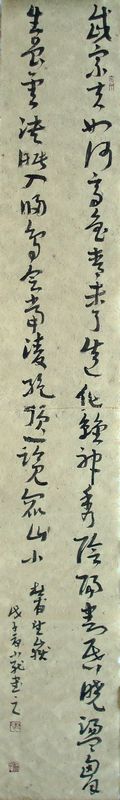 岱宗夫如何齊魯青未了造化鍾神秀陰陽割昏曉盪胸
生曾雲決眥入歸鳥會當凌絕頂一覽衆山小
杜甫望嶽
戊子夏書之